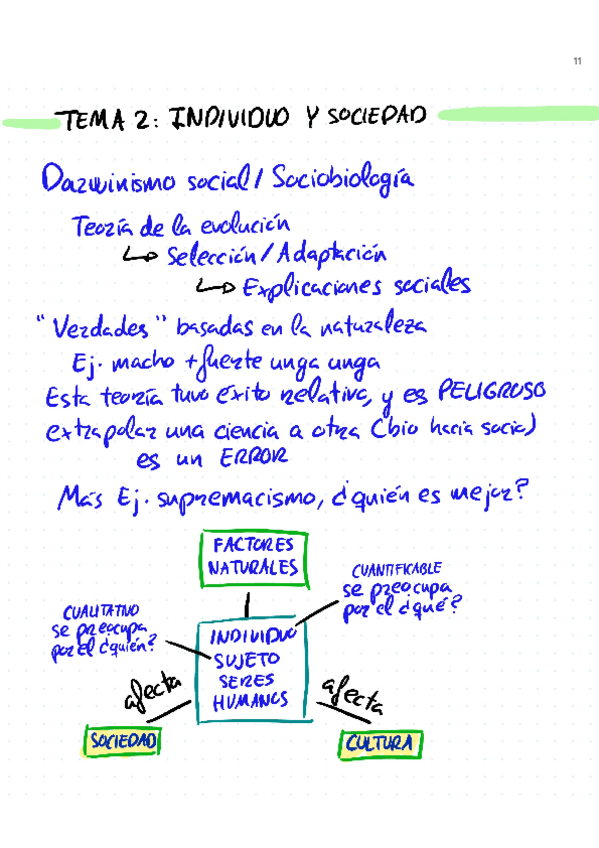 11
TEMA 2: INDIVIDUO Y SOCIEDAD
Darwinismo social / Sociobiología
Teoría de la evolución
↳ Selección / Adaptación
↳ Explicaciones sociales
"Verdades" basadas en la naturaleza
Ej. macho + fuerte unga unga
Esta teoría tuvo éxito relativo, y es PELIGROSO
extrapolar una ciencia a otra (bio hacia socio)
es un ERROR
Más Ej. supremacismo, ¿quién es mejor?
FACTORES
NATURALES
CUANTIFICABLE
se preocupa
por el ¿qué?
CUALITATIVO
se preocupa
por el ¿quién?
INDIVIDUO
SUJETO
SERES
HUMANOS
afecta
afecta
SOCIEDAD
CULTURA